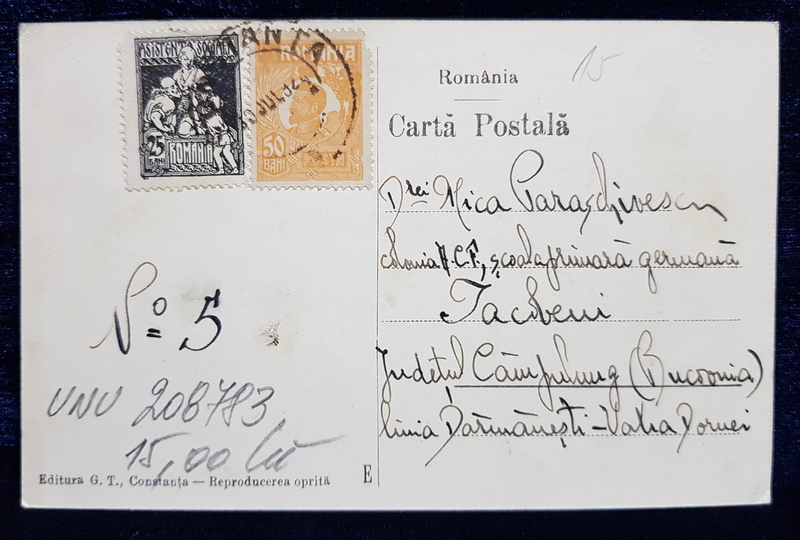 ASISTENȚA SOCIALĂ
25 BANI
ROMÂNIA
ROMÂNIA
50 BANI
POSTA
15
România
Cartă Poștală
Drei Mica Paraschivescu
colonia A.C.F., școala primară germană
Iacobeni
Județul Câmpulung (Bucovina)
linia Dărmănești - Vatra Dornei
No 5
UNU 208783
15,00 lei
Editura G. T., Constanța — Reproducerea oprită
E